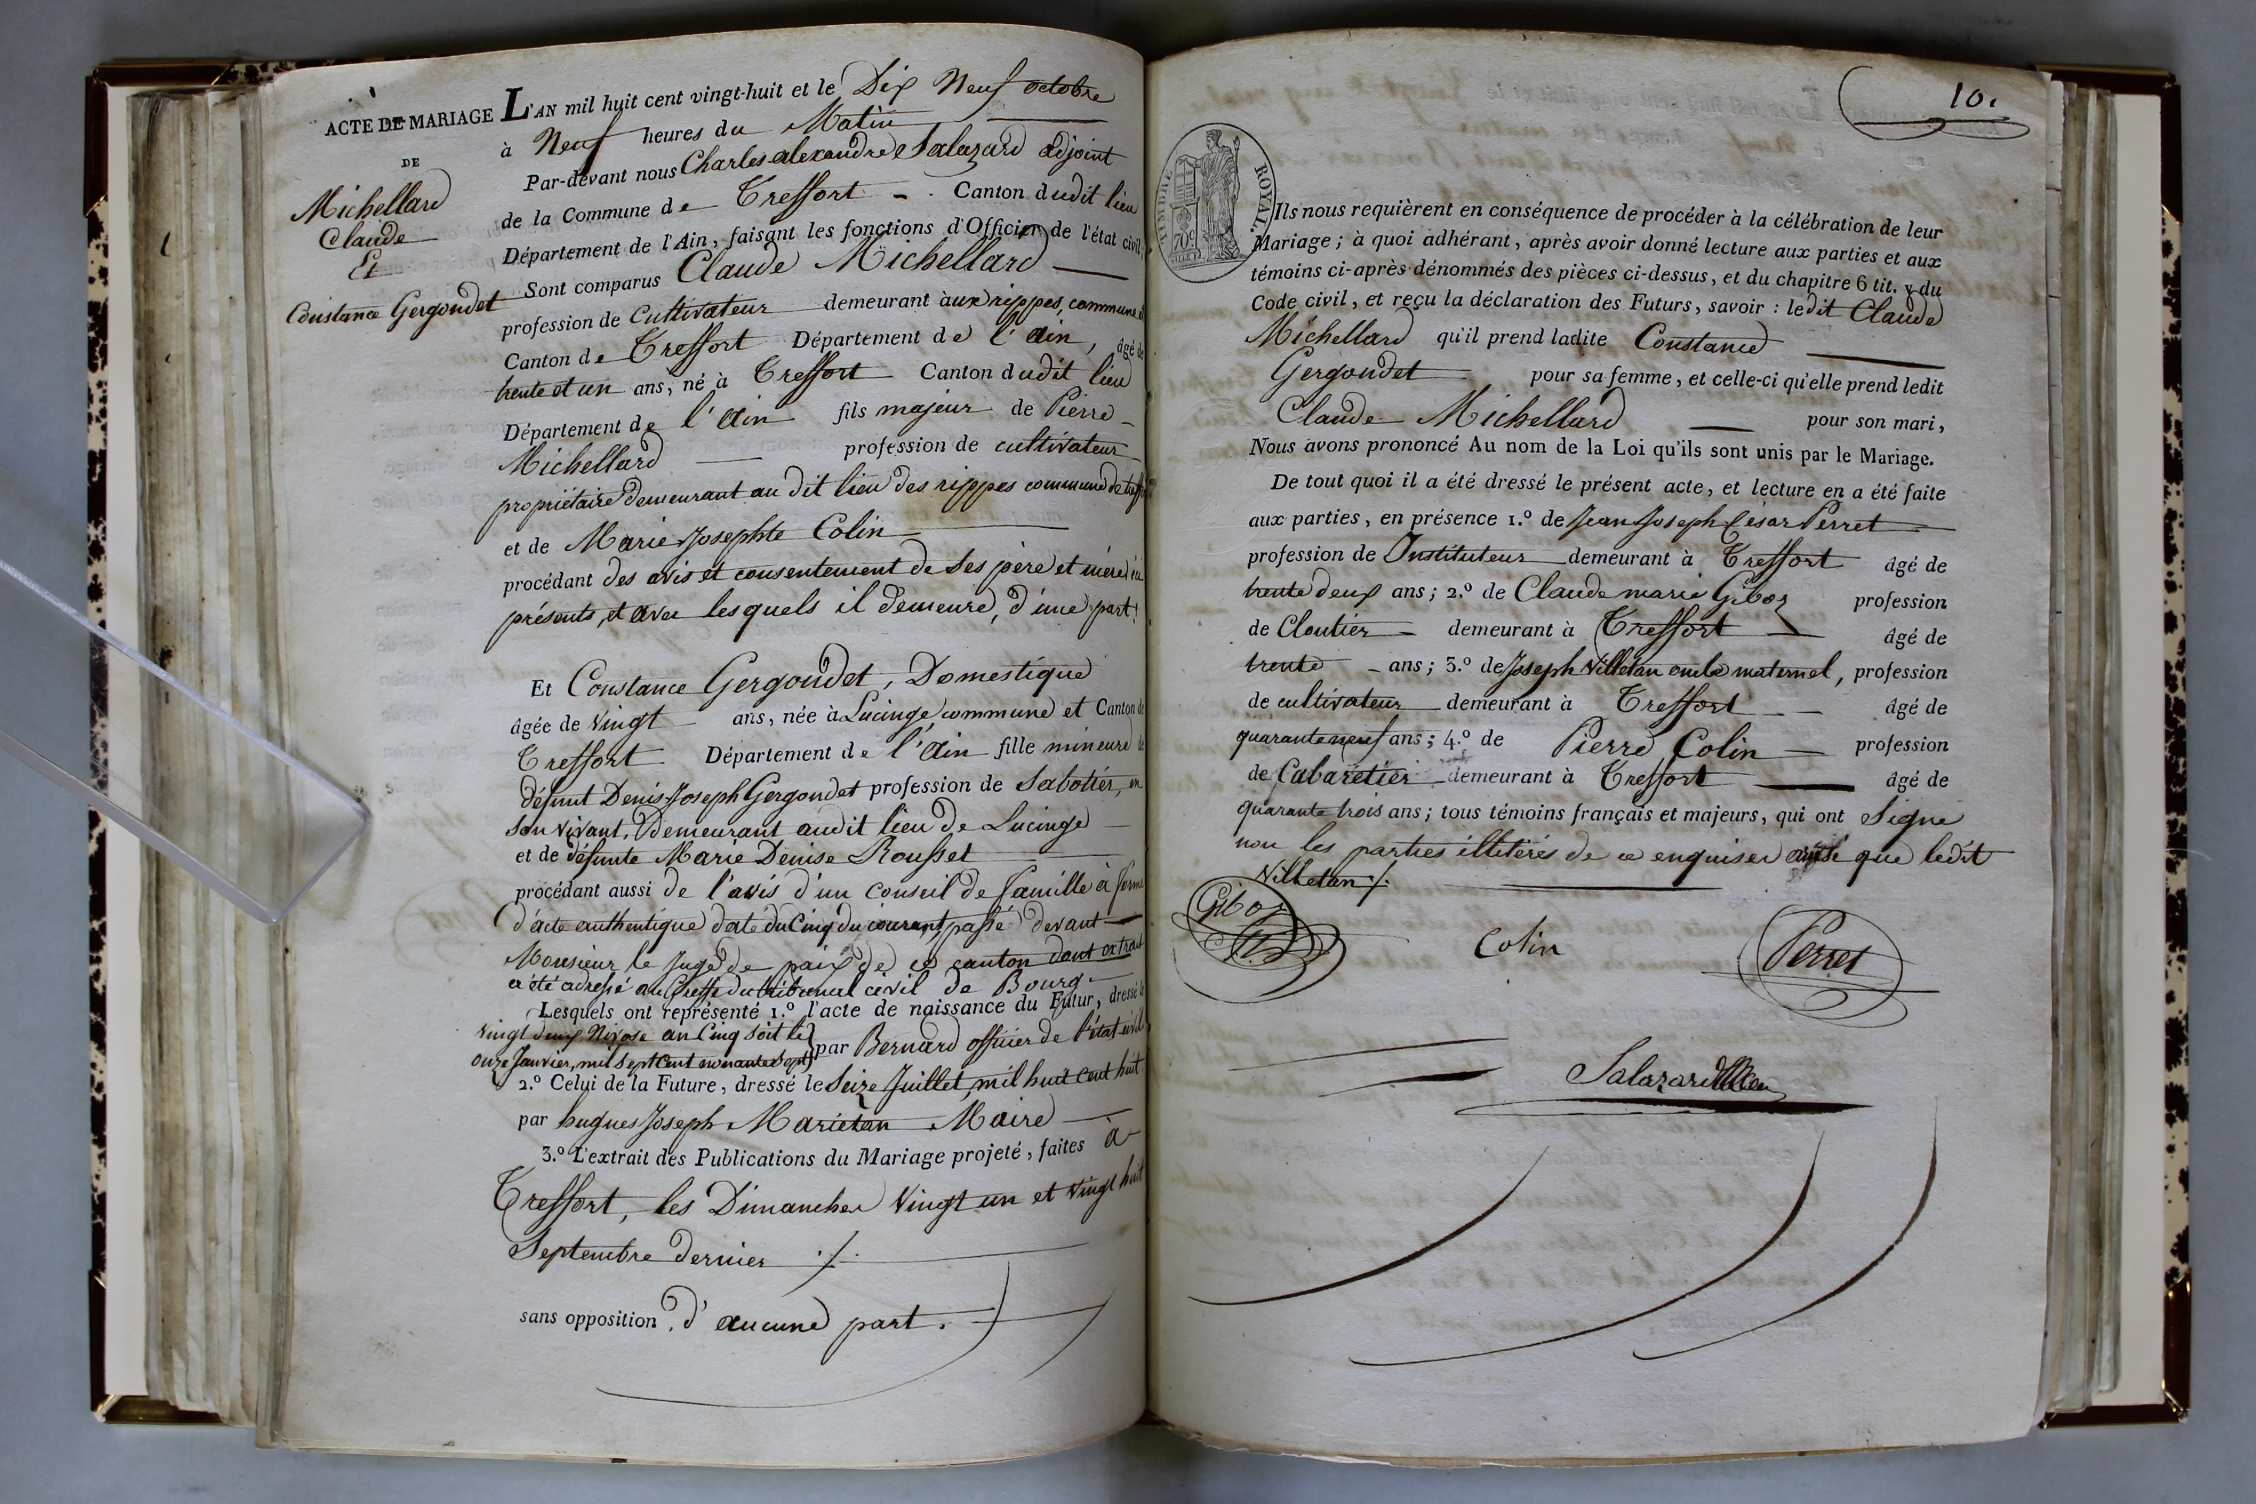 ACTE DE MARIAGE
DE
Michellard
Claude
Et
Constance Gergondet
L'AN mil huit cent vingt-huit et le Dix Neuf octobre
à Neuf heures du Matin
Par-devant nous Charles alexandre Salazard adjoint
de la Commune de Treffort Canton dudit lieu
Département de l'Ain, faisant les fonctions d'Officier de l'état civil,
Sont comparus Claude Michellard
profession de Cultivateur demeurant aux rippes, commune et
Canton de Treffort Département de l'ain, âgé de
trente et un ans, né à Treffort Canton dudit lieu
Département de l'ain fils majeur de Pierre
Michellard profession de cultivateur
propriétaire demeurant au dit lieu des rippes commune de treffort
et de Marie Josephte Colin
procédant des avis et consentement de ses père et mère ici
présents, et avec lesquels il demeure, d'une part.
Et Constance Gergondet, Domestique
âgée de vingt ans, née à Lucinge, commune et Canton de
Treffort Département de l'ain fille mineure de
défunt Denis Joseph Gergondet profession de Sabotier, en
son vivant, demeurant audit lieu de Lucinge
et de défunte Marie Denise Rousset
procédant aussi de l'avis d'un conseil de famille à forme
d'acte authentique daté du Cinq du courant, passé devant
Monsieur le Juge de paix de ce canton dont extrait
a été adressé au Greffe du tribunal civil de Bourg
Lesquels ont représenté 1.º l'acte de naissance du Futur, dressé le
vingt deux Nivose an Cinq soit le
onze Janvier, mil sept cent nonante sept) par Bernard officier de l'état civil
2.º Celui de la Future, dressé le Seize Juillet, mil huit cent huit
par hugues Joseph Marietan Maire
3.º L'extrait des Publications du Mariage projeté, faites à
Treffort, les Dimanches vingt un et vingt huit
Septembre dernier ./.
sans opposition d'aucune part.
10.
TIMBRE ROYAL
70c
Ils nous requièrent en conséquence de procéder à la célébration de leur
Mariage; à quoi adhérant, après avoir donné lecture aux parties et aux
témoins ci-après dénommés des pièces ci-dessus, et du chapitre 6 tit. v du
Code civil, et reçu la déclaration des Futurs, savoir : ledit Claude
Michellard qu'il prend ladite Constance
Gergondet pour sa femme, et celle-ci qu'elle prend ledit
Claude Michellard pour son mari,
Nous avons prononcé Au nom de la Loi qu'ils sont unis par le Mariage.
De tout quoi il a été dressé le présent acte, et lecture en a été faite
aux parties, en présence 1.º de Jean Joseph César Perret
profession de Instituteur demeurant à Treffort âgé de
trente deux ans; 2.º de Claude marie Giboz profession
de Cloutier demeurant à Treffort âgé de
trente ans; 3.º de Joseph Villetan oncle maternel, profession
de cultivateur demeurant à Treffort âgé de
quarante neuf ans; 4.º de Pierre Colin profession
de Cabaretier demeurant à Treffort âgé de
quarante trois ans; tous témoins français et majeurs, qui ont Signé
non les parties illetérés de ce enquises ainsi que ledit
Villetan ./.
Giboz
Colin
Perret
Salazard